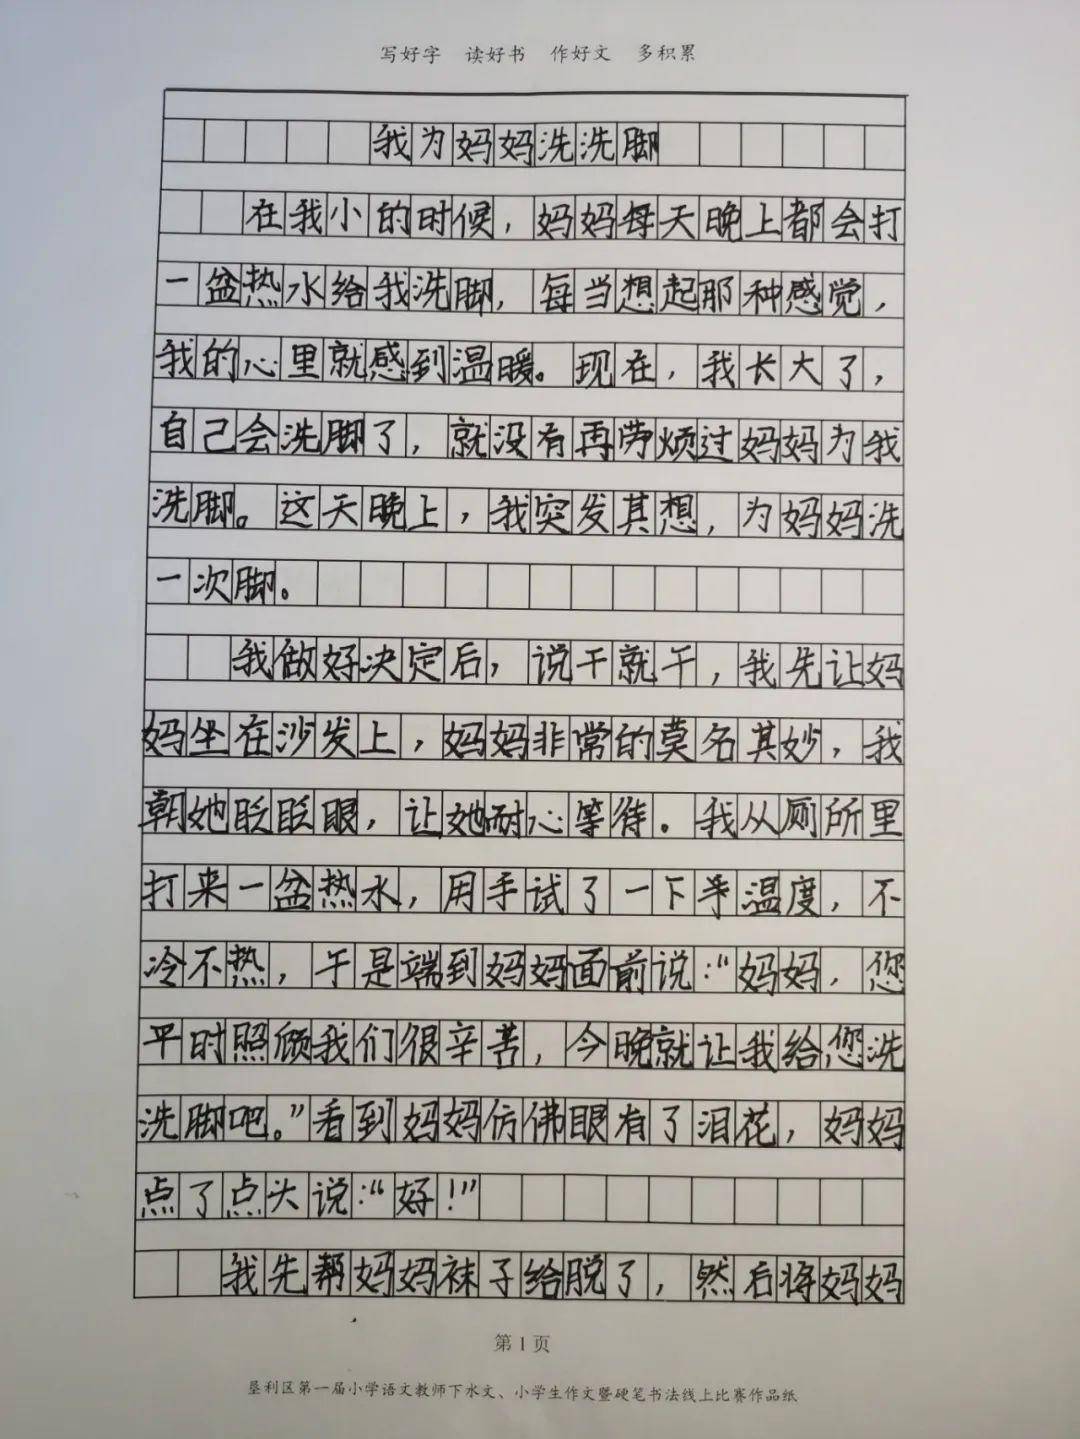 写好字 读好书 作好文 多积累
我为妈妈洗洗脚
在我小的时候，妈妈每天晚上都会打
一盆热水给我洗脚，每当想起那种感觉，
我的心里就感到温暖。现在，我长大了，
自己会洗脚了，就没有再劳烦过妈妈为我
洗脚。这天晚上，我突发其想，为妈妈洗
一次脚。
我做好决定后，说干就干，我先让妈
妈坐在沙发上，妈妈非常的莫名其妙，我
朝她眨眨眼，让她耐心等待。我从厕所里
打来一盆热水，用手试了一下手温度，不
冷不热，于是端到妈妈面前说：“妈妈，您
平时照顾我们很辛苦，今晚就让我给您洗
洗脚吧。”看到妈妈仿佛眼有了泪花，妈妈
点了点头说：“好！”
我先帮妈妈袜子给脱了，然后将妈妈
第1页
垦利区第一届小学语文教师下水文、小学生作文暨硬笔书法线上比赛作品纸